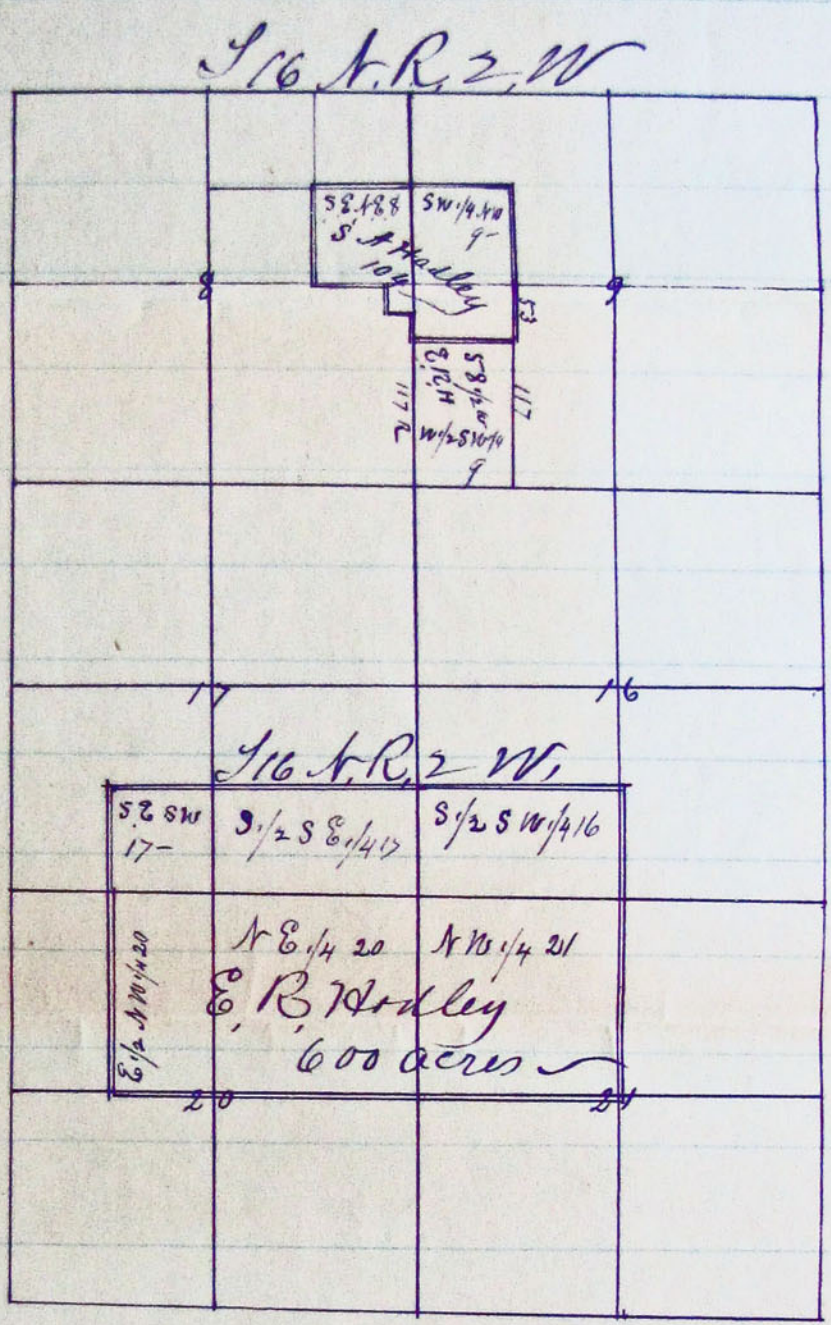 T 16 N. R. 2, W
S.E. N.E. 8
SW 1/4 NW
9-
S A Hadley
104
8
9
53
58 1/2 W
117
117 R
W 1/2 SW 1/4
9
17
16
T 16 N. R. 2 W.
S.E SW
17-
S 1/2 S E 1/4 17
S 1/2 S W 1/4 16
E 1/2 N W 1/4 20
N E 1/4 20
N W 1/4 21
E. B. Hadley
600 acres
20
21